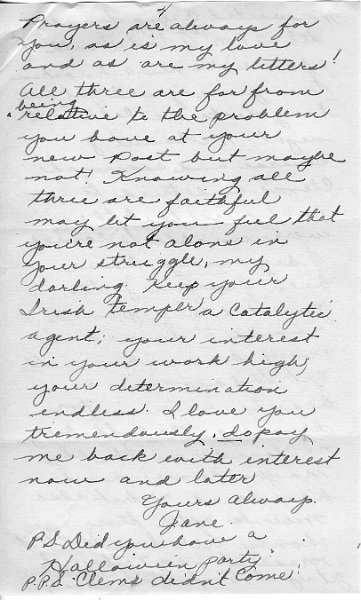 4
Prayers are always for
you, as is my love
and as are my letters!
All three are far from
being
relative to the problem
you have at your
new post but maybe
not! Knowing all
three are faithful
may let you feel that
you're not alone in
your struggle, my
darling. Keep your
Irish temper a catalytic
agent; your interest
in your work high;
your determination
endless. I love you
tremendously, so pay
me back with interest
now and later
Yours always.
Jane.
P.S. Did you have a
Halloween party?
P.P.S. Clems didn't come!